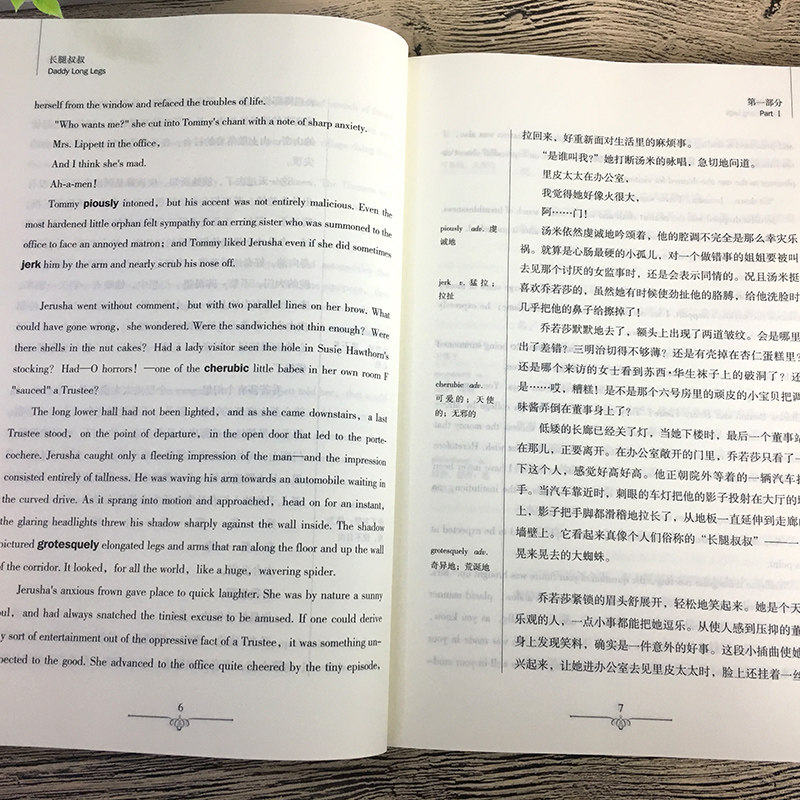 长腿叔叔
Daddy Long Legs
herself from the window and refaced the troubles of life.
"Who wants me?" she cut into Tommy's chant with a note of sharp anxiety.
Mrs. Lippett in the office,
And I think she's mad.
Ah-a-men!
Tommy piously intoned, but his accent was not entirely malicious. Even the
most hardened little orphan felt sympathy for an erring sister who was summoned to the
office to face an annoyed matron; and Tommy liked Jerusha even if she did sometimes
jerk him by the arm and nearly scrub his nose off.
Jerusha went without comment, but with two parallel lines on her brow. What
could have gone wrong, she wondered. Were the sandwiches not thin enough? Were
there shells in the nut cakes? Had a lady visitor seen the hole in Susie Hawthorn's
stocking? Had—O horrors! —one of the cherubic little babes in her own room F
"sauced" a Trustee?
The long lower hall had not been lighted, and as she came downstairs, a last
Trustee stood, on the point of departure, in the open door that led to the porte-
cochere. Jerusha caught only a fleeting impression of the man—and the impression
consisted entirely of tallness. He was waving his arm towards an automobile waiting in
the curved drive. As it sprang into motion and approached, head on for an instant,
the glaring headlights threw his shadow sharply against the wall inside. The shadow
pictured grotesquely elongated legs and arms that ran along the floor and up the wall
of the corridor. It looked, for all the world, like a huge, wavering spider.
Jerusha's anxious frown gave place to quick laughter. She was by nature a sunny
oul, and had always snatched the tiniest excuse to be amused. If one could derive
y sort of entertainment out of the oppressive fact of a Trustee, it was something un-
pected to the good. She advanced to the office quite cheered by the tiny episode,
6
第一部分
Part I
拉回来、好重新面对生活里的麻烦事。
“是谁叫我?”她打断汤米的咏唱，急切地问道。
里皮太太在办公室、
我觉得她好像火很大，
阿……门!
汤米依然虔诚地吟颂着，他的腔调不完全是那么幸灾乐
祸。就算是心肠最硬的小孤儿，对一个做错事的姐姐要被叫
去见那个讨厌的女监事时，还是会表示同情的。况且汤米挺
喜欢乔若莎的，虽然她有时候使劲扯他的胳膊，给他洗脸时
几乎把他的鼻子给擦掉了!
乔若莎默默地去了，额头上出现了两道皱纹。会是哪里
出了差错? 三明治切得不够薄? 还是有壳掉在杏仁蛋糕里?
还是哪个来访的女士看到苏西·华生袜子上的破洞了? 还
是……哎，糟糕! 是不是那个六号房里的顽皮的小宝贝把调
味酱弄倒在董事身上了?
低矮的长廊已经关了灯，当她下楼时，最后一个董事站
在那儿，正要离开。在办公室敞开的门里，乔若莎只看了一
下这个人，感觉好高好高。他正朝院外等着的一辆汽车挥
手。当汽车靠近时，刺眼的车灯把他的影子投射在大厅的墙
上，影子把手脚都滑稽地拉长了，从地板一直延伸到走廊的
墙壁上。它看起来真像个人们俗称的“长腿叔叔”——
晃来晃去的大蜘蛛。
乔若莎紧锁的眉头舒展开，轻松地笑起来。她是个天
乐观的人，一点小事都能把她逗乐。从使人感到压抑的董
身上发现笑料，确实是一件意外的好事。这段小插曲使她
兴起来，让她进办公室去见里皮太太时，脸上还挂着一丝
piously adv. 虔
诚地
jerk v. 猛拉；
拉扯
cherubic adv.
可爱的；天使
的；无邪的
grotesquely adv.
奇异地；荒诞地
7